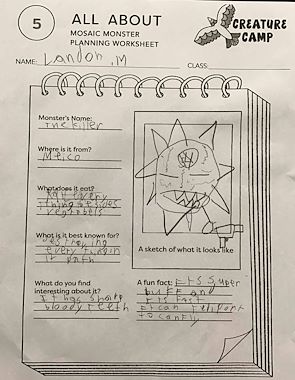 5
ALL ABOUT
MOSAIC MONSTER
PLANNING WORKSHEET
CREATURE
CAMP
NAME: Landon .M
CLASS:
Monster's Name:
The killer
Where is it from?
Meico
What does it eat?
every
thing besides
vegtabels
What is it best known for?
destroying
every thing in
it path
What do you find
interesting about it?
It has sharp
bloody teeth
A sketch of what it looks like
A fun fact: It's super
buff and
it's fast
it can teliport
to